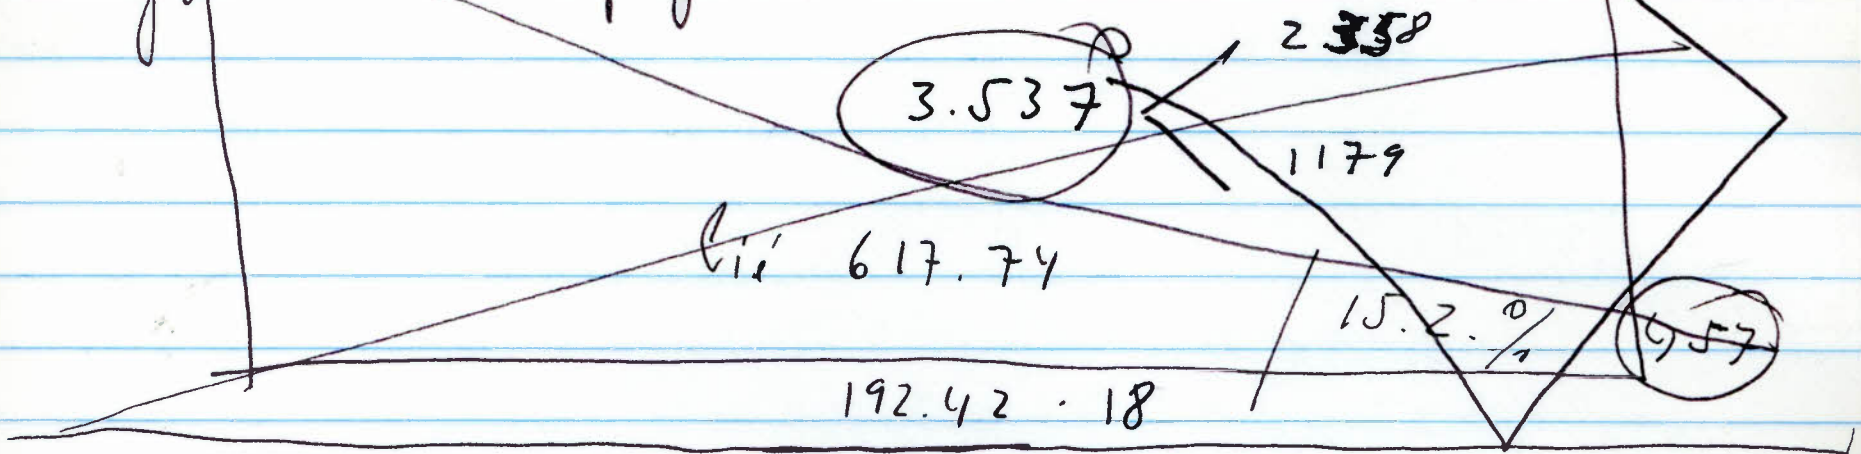 2 358
3.537
1179
617.74
15.2.%
957
192.42 · 18